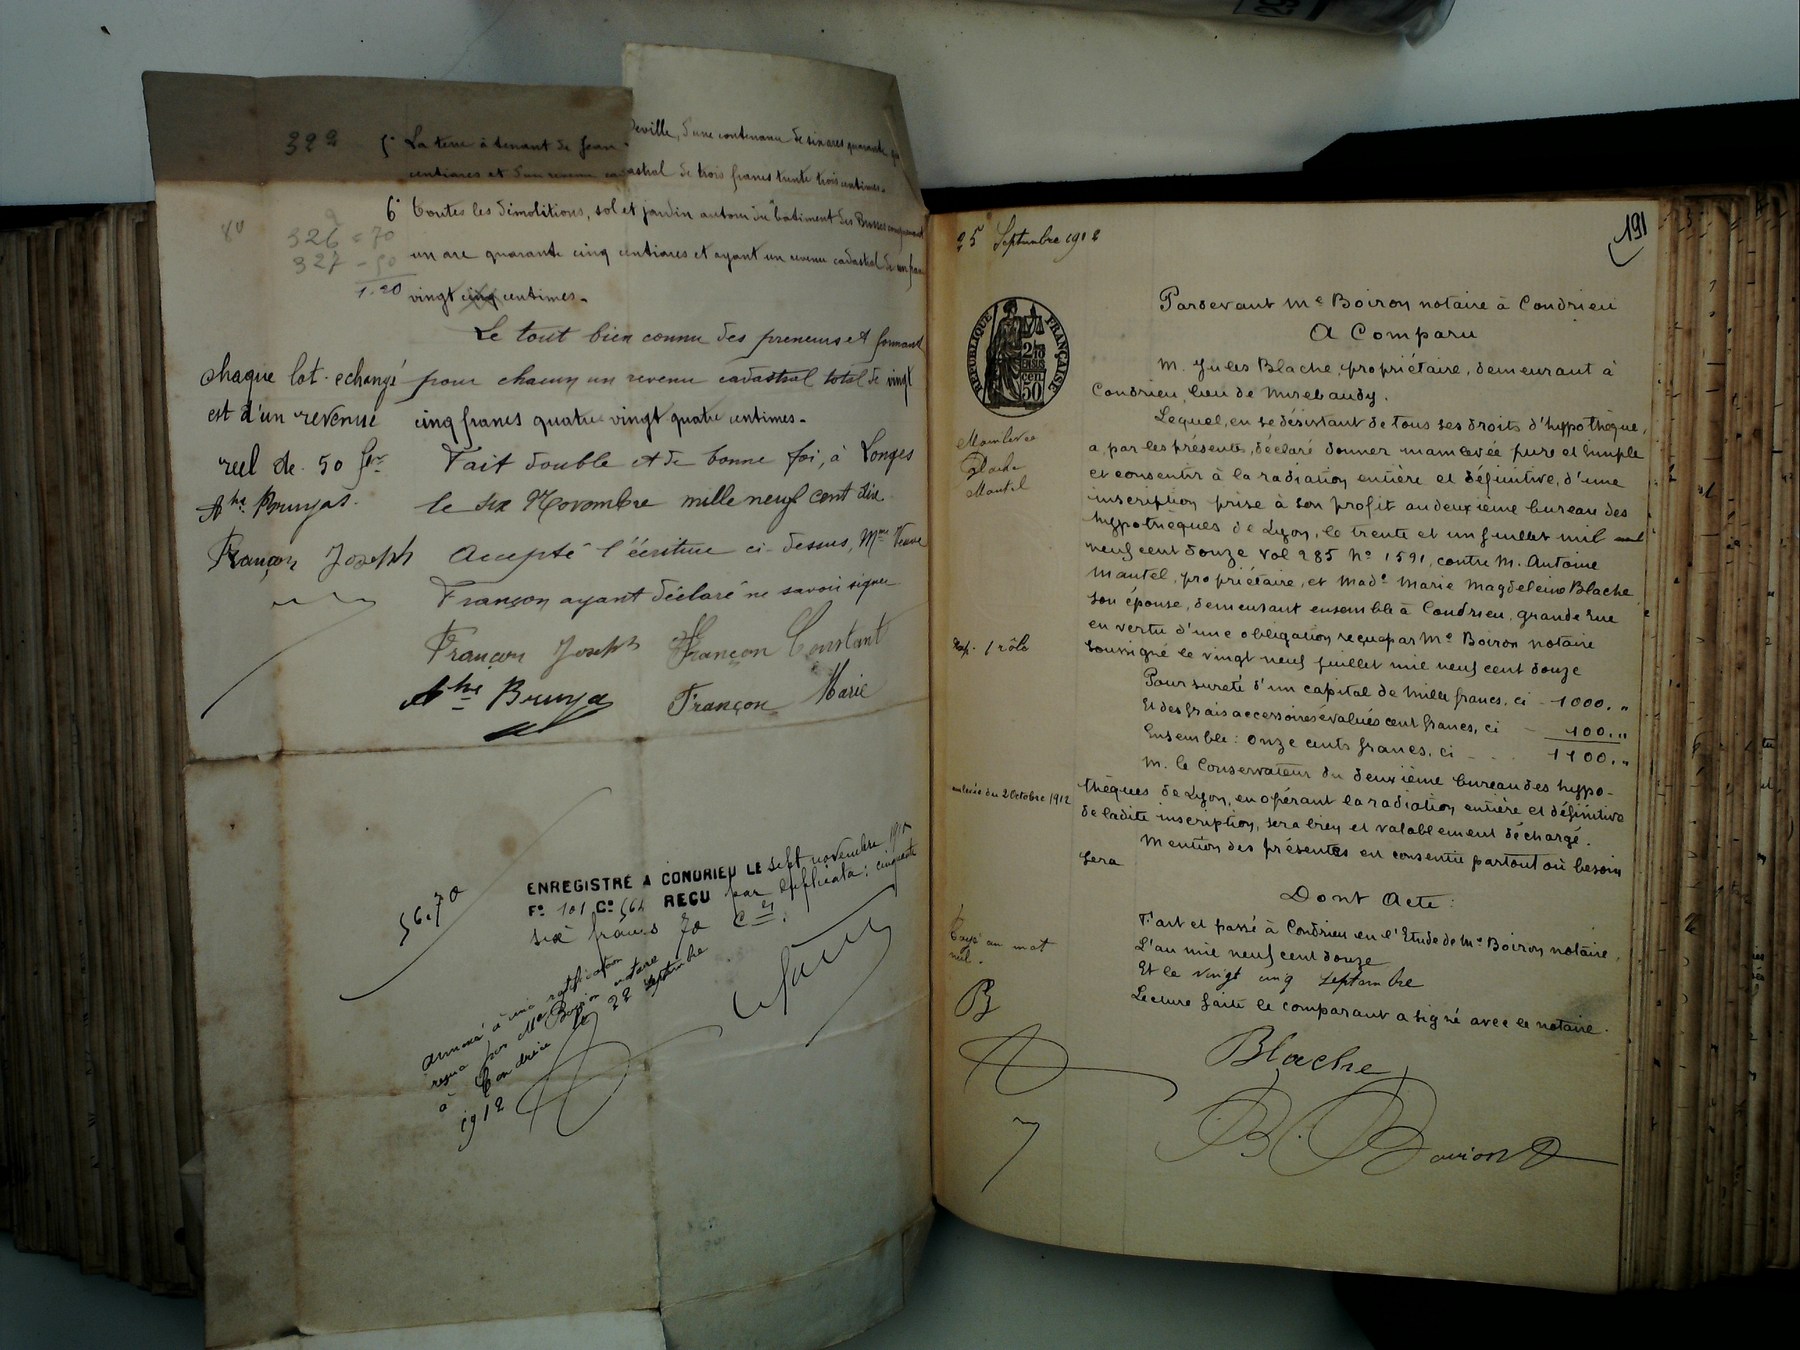 322
5° La terre à tenant de Jean Deville, d'une contenance de six ares quarante
centiares et d'un revenu cadastral de trois francs trente trois centimes.
6° Toutes les démolitions, sol et jardin autour du bâtiment des Brosses comprenant
un are quarante cinq centiares et ayant un revenu cadastral de un franc
vingt cinq centimes.
80
326 = 70
327 - 50
1.20
Le tout bien connu des preneurs et formant
pour chacun un revenu cadastral total de vingt
cinq francs quatre vingt quatre centimes.
chaque lot echangé
est d'un revenue
reel de 50 frs
Ahe Brunyas.
Françon Joseph
Fait double et de bonne foi, à Longes
le six Novembre mille neuf cent dix.
Accepté l'écriture ci-dessus, Mme Veuve
Françon ayant déclaré ne savoir signer
Françon Joseph Françon Constant
Ahe Brunya Françon Marie
56,70
ENREGISTRÉ A CONDRIEU LE sept novembre 1910
F° 101 C° 564 REÇU par duplicata : cinquante
six francs 70 c
annexé à une ratification
reçue par Me Boiron notaire
à Condrieu le 22 septembre
1912
191
25 Septembre 1912
RÉPUBLIQUE FRANÇAISE
2/10
EN SUS
50 cen
Pardevant Me Boiron notaire à Condrieu
A Comparu
M. Jules Blache, propriétaire, demeurant à
Condrieu, lieu de Mirebaudy.
Lequel, en se désistant de tous ses droits d'hypothèque,
a, par les présentes, déclaré donner mainlevée pure et simple
et consentir à la radiation entière et définitive, d'une
inscription prise à son profit au deuxième bureau des
hypothèques de Lyon, le trente et un juillet mil
neuf cent douze vol 285 N° 1591, contre M. Antoine
Mantel, propriétaire, et Made Marie Magdeleine Blache
son épouse, demeurant ensemble à Condrieu, grande rue
en vertu d'une obligation reçue par Me Boiron notaire
soussigné le vingt neuf juillet mil neuf cent douze
Pour sureté d'un capital de mille francs, ci - 1000. "
Et des frais accessoires évalués cent francs, ci - 100. "
Ensemble : onze cents francs, ci - - - 1100. "
M. le Conservateur du deuxième bureau des hypo-
thèques de Lyon, en opérant la radiation entière et définitive
de ladite inscription, sera bien et valablement déchargé.
Mention des présentes est consentie partout où besoin
sera
Dont Acte :
Fait et passé à Condrieu en l'Etude de Me Boiron notaire,
L'an mil neuf cent douze
Et le vingt cinq septembre
Lecture faite le comparant a signé avec le notaire.
Blache
B. Boiron
Mainlevée
Blache
Mantel
Exp. 1 rôle
du 2 Octobre 1912
Rayé un mot
nul.
B